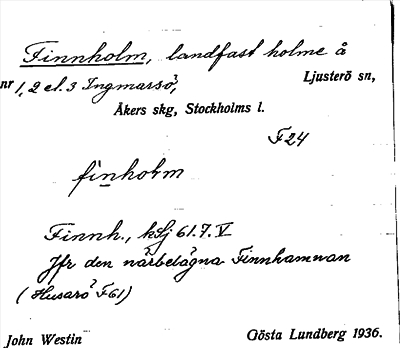 Finnholm, landfast holme å
nr 1, 2 el. 3 Ingmarsö, Ljusterö sn,
Åkers skg, Stockholms l.
F24
finholm
Finnh., kSj 61.7.V
Jfr den närbelägna Finnhamnan
(Husarö F61)
John Westin Gösta Lundberg 1936.